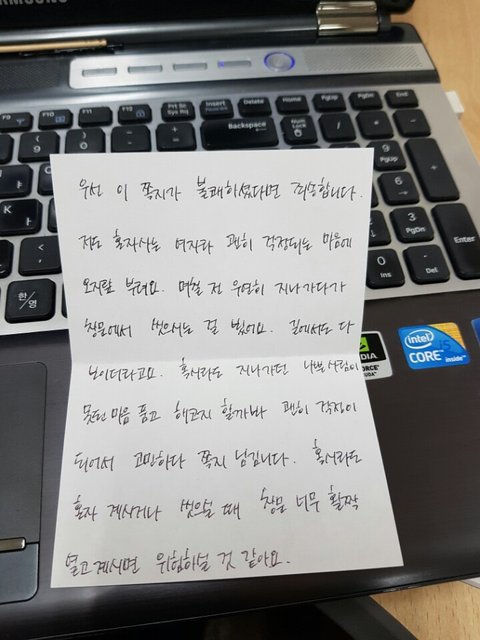 SAMSUNG
F9 F10 F11 F12 Prt Sc Sys Rq Insert Delete Home PgUp PgDn End
Backspace Num Lock
9 PgUp
6
3 PgDn
Enter
0 Ins . Del
한/영
우선 이 쪽지가 불쾌하셨다면 죄송합니다.
저도 혼자사는 여자라 괜히 걱정되는 마음에
오지랖 부려요. 며칠 전 우연히 지나가다가
창문에서 씻으시는 걸 봤어요. 길에서도 다
보이더라고요. 혹시라도 지나가던 나쁜사람이
못된 마음 품고 해코지 할까봐 괜히 걱정이
되어서 고민하다 쪽지 남깁니다. 혹시라도
혼자 계시거나 씻으실 때 창문 너무 활짝
열고계시면 위험하실 것 같아요.
intel i5
CORE inside